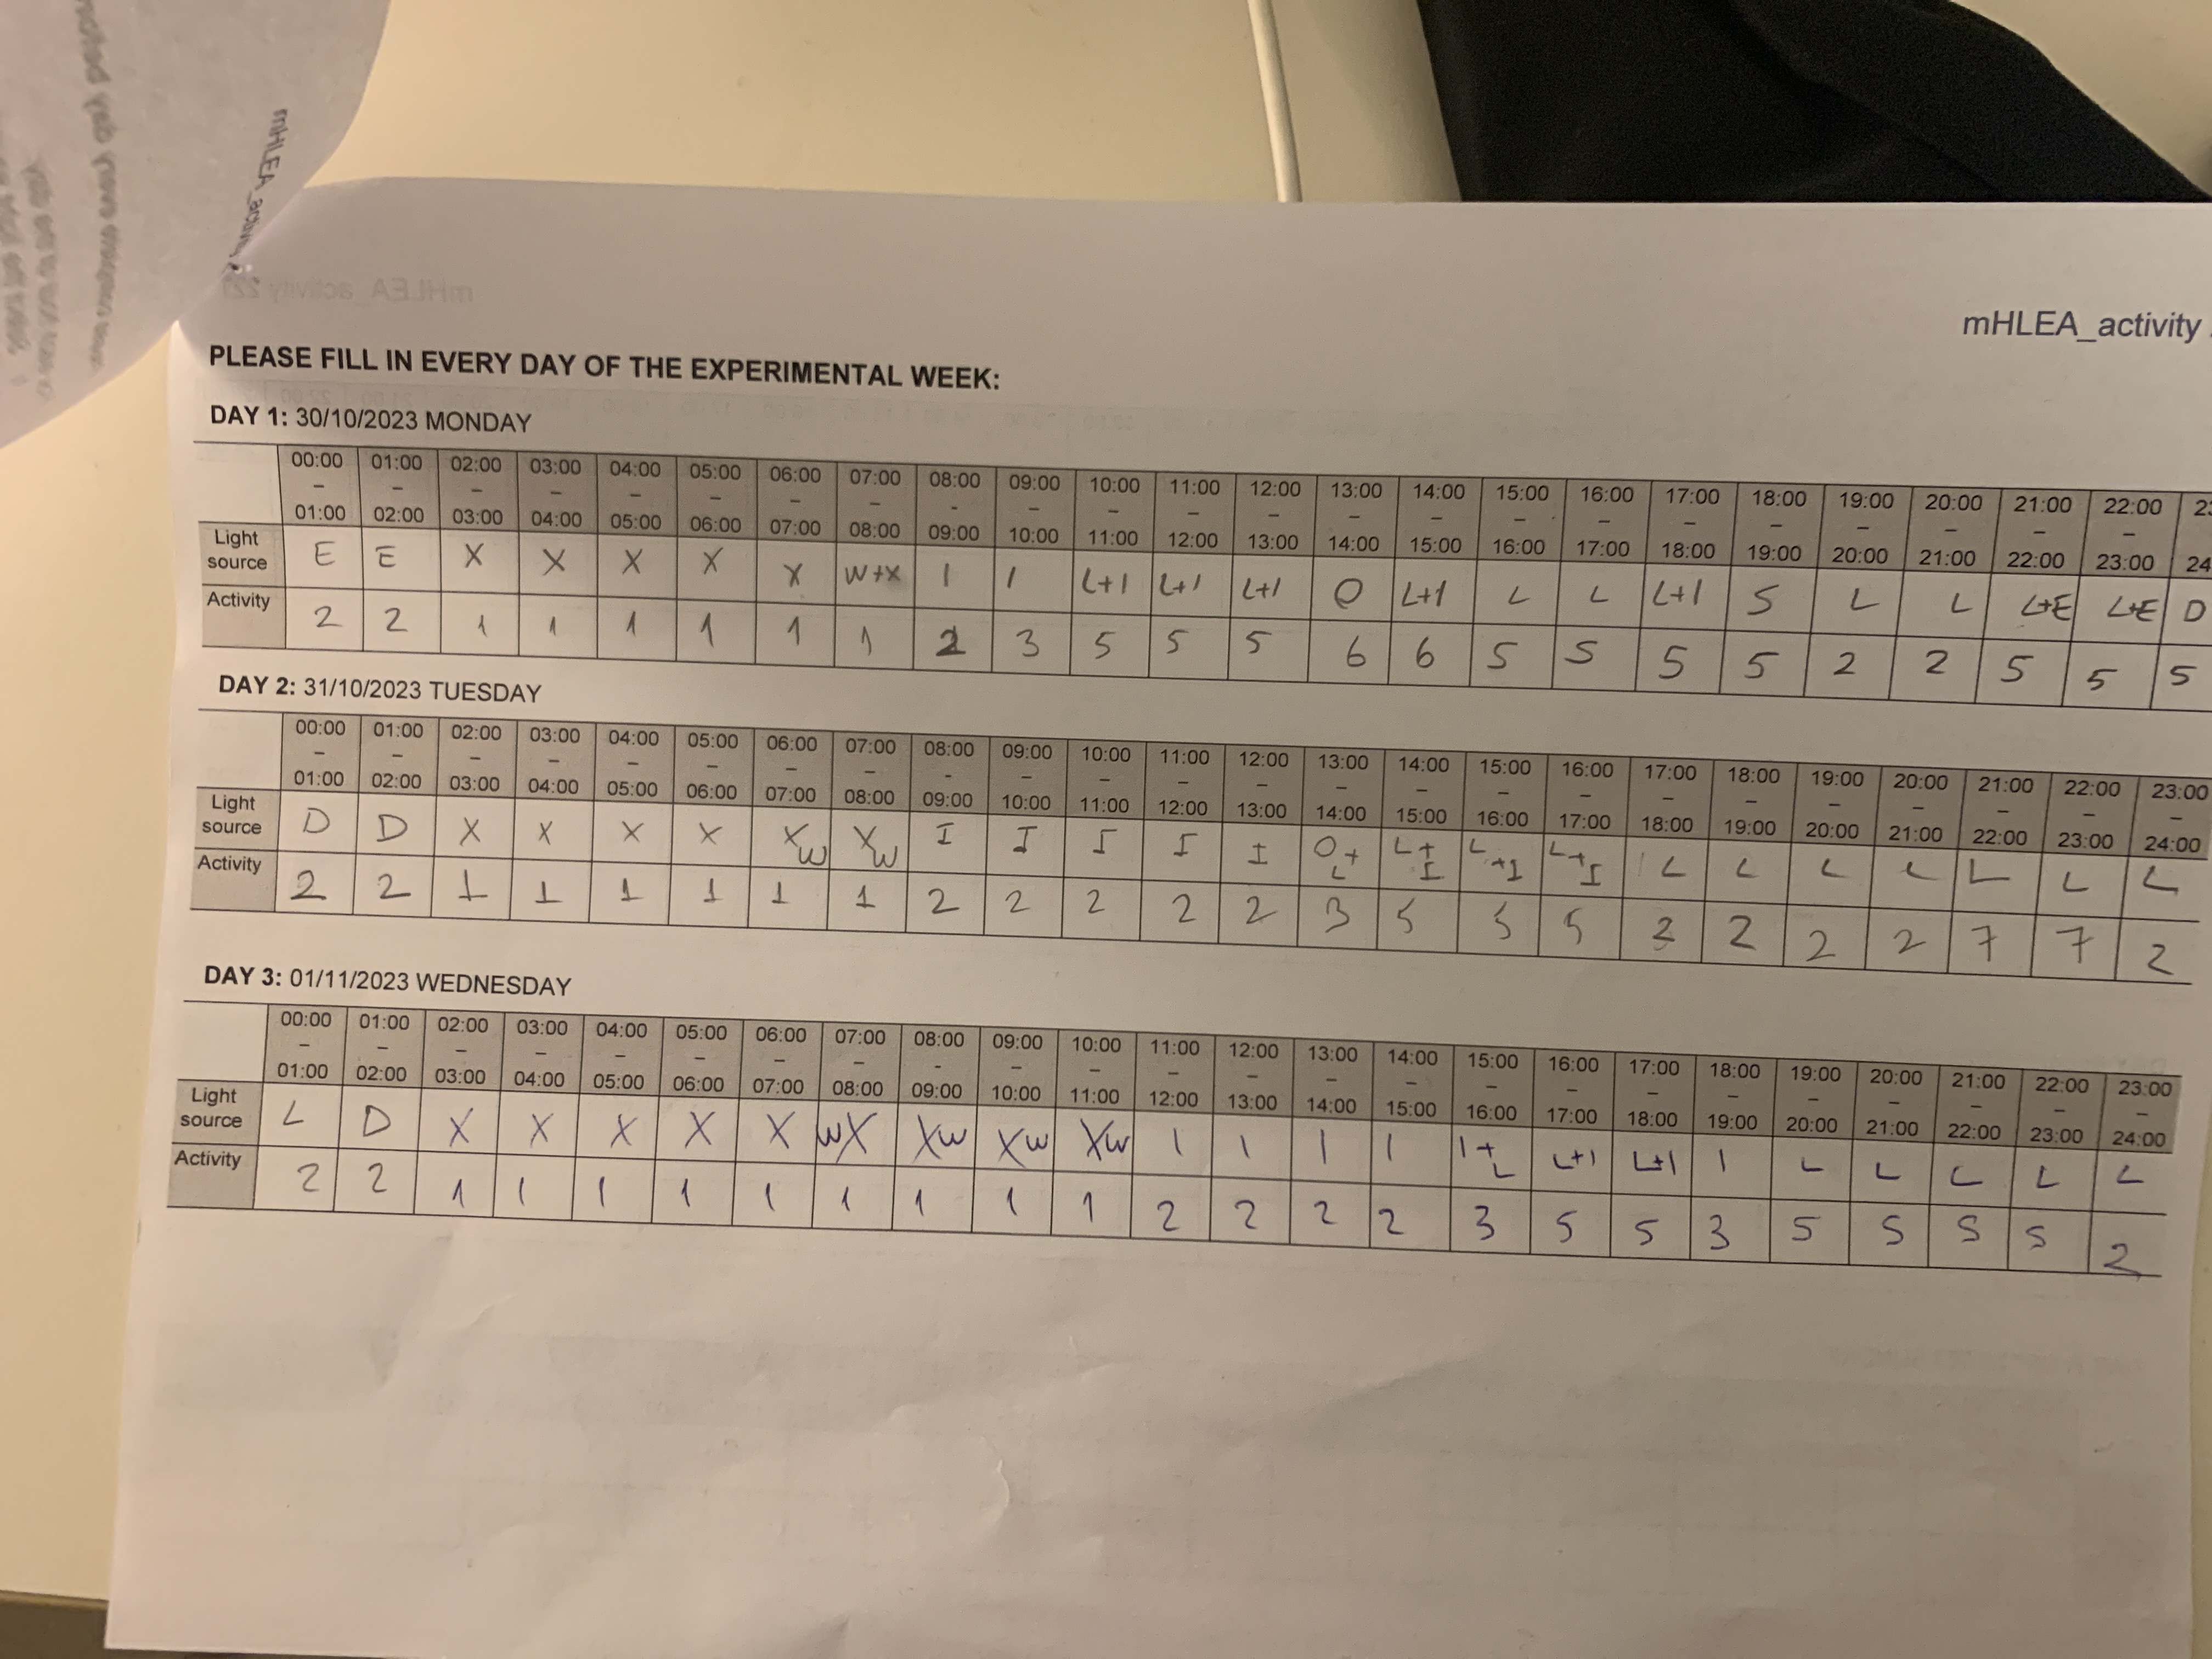 mHLEA_activity
PLEASE FILL IN EVERY DAY OF THE EXPERIMENTAL WEEK:
DAY 1: 30/10/2023 MONDAY
00:00 - 01:00 01:00 - 02:00 02:00 - 03:00 03:00 - 04:00 04:00 - 05:00 05:00 - 06:00 06:00 - 07:00 07:00 - 08:00 08:00 - 09:00 09:00 - 10:00 10:00 - 11:00 11:00 - 12:00 12:00 - 13:00 13:00 - 14:00 14:00 - 15:00 15:00 - 16:00 16:00 - 17:00 17:00 - 18:00 18:00 - 19:00 19:00 - 20:00 20:00 - 21:00 21:00 - 22:00 22:00 - 23:00 24
Light source E E X X X X X W+X I I L+I L+I L+I O L+I L L L+I S L L L+E L+E D
Activity 2 2 1 1 1 1 1 1 2 3 5 5 5 6 6 5 5 5 5 2 2 5 5 5
DAY 2: 31/10/2023 TUESDAY
00:00 - 01:00 01:00 - 02:00 02:00 - 03:00 03:00 - 04:00 04:00 - 05:00 05:00 - 06:00 06:00 - 07:00 07:00 - 08:00 08:00 - 09:00 09:00 - 10:00 10:00 - 11:00 11:00 - 12:00 12:00 - 13:00 13:00 - 14:00 14:00 - 15:00 15:00 - 16:00 16:00 - 17:00 17:00 - 18:00 18:00 - 19:00 19:00 - 20:00 20:00 - 21:00 21:00 - 22:00 22:00 - 23:00 23:00 - 24:00
Light source D D X X X X XW XW I I I I I O+L L+I L+I L+I L L L L L L L
Activity 2 2 1 1 1 1 1 1 2 2 2 2 2 3 5 5 5 2 2 2 2 7 7 2
DAY 3: 01/11/2023 WEDNESDAY
00:00 - 01:00 01:00 - 02:00 02:00 - 03:00 03:00 - 04:00 04:00 - 05:00 05:00 - 06:00 06:00 - 07:00 07:00 - 08:00 08:00 - 09:00 09:00 - 10:00 10:00 - 11:00 11:00 - 12:00 12:00 - 13:00 13:00 - 14:00 14:00 - 15:00 15:00 - 16:00 16:00 - 17:00 17:00 - 18:00 18:00 - 19:00 19:00 - 20:00 20:00 - 21:00 21:00 - 22:00 22:00 - 23:00 23:00 - 24:00
Light source L D X X X X X WX XW XW XW I I I I I+L L+I L+I I L L L L L
Activity 2 2 1 1 1 1 1 1 1 1 1 2 2 2 2 3 5 5 3 5 5 5 5 2